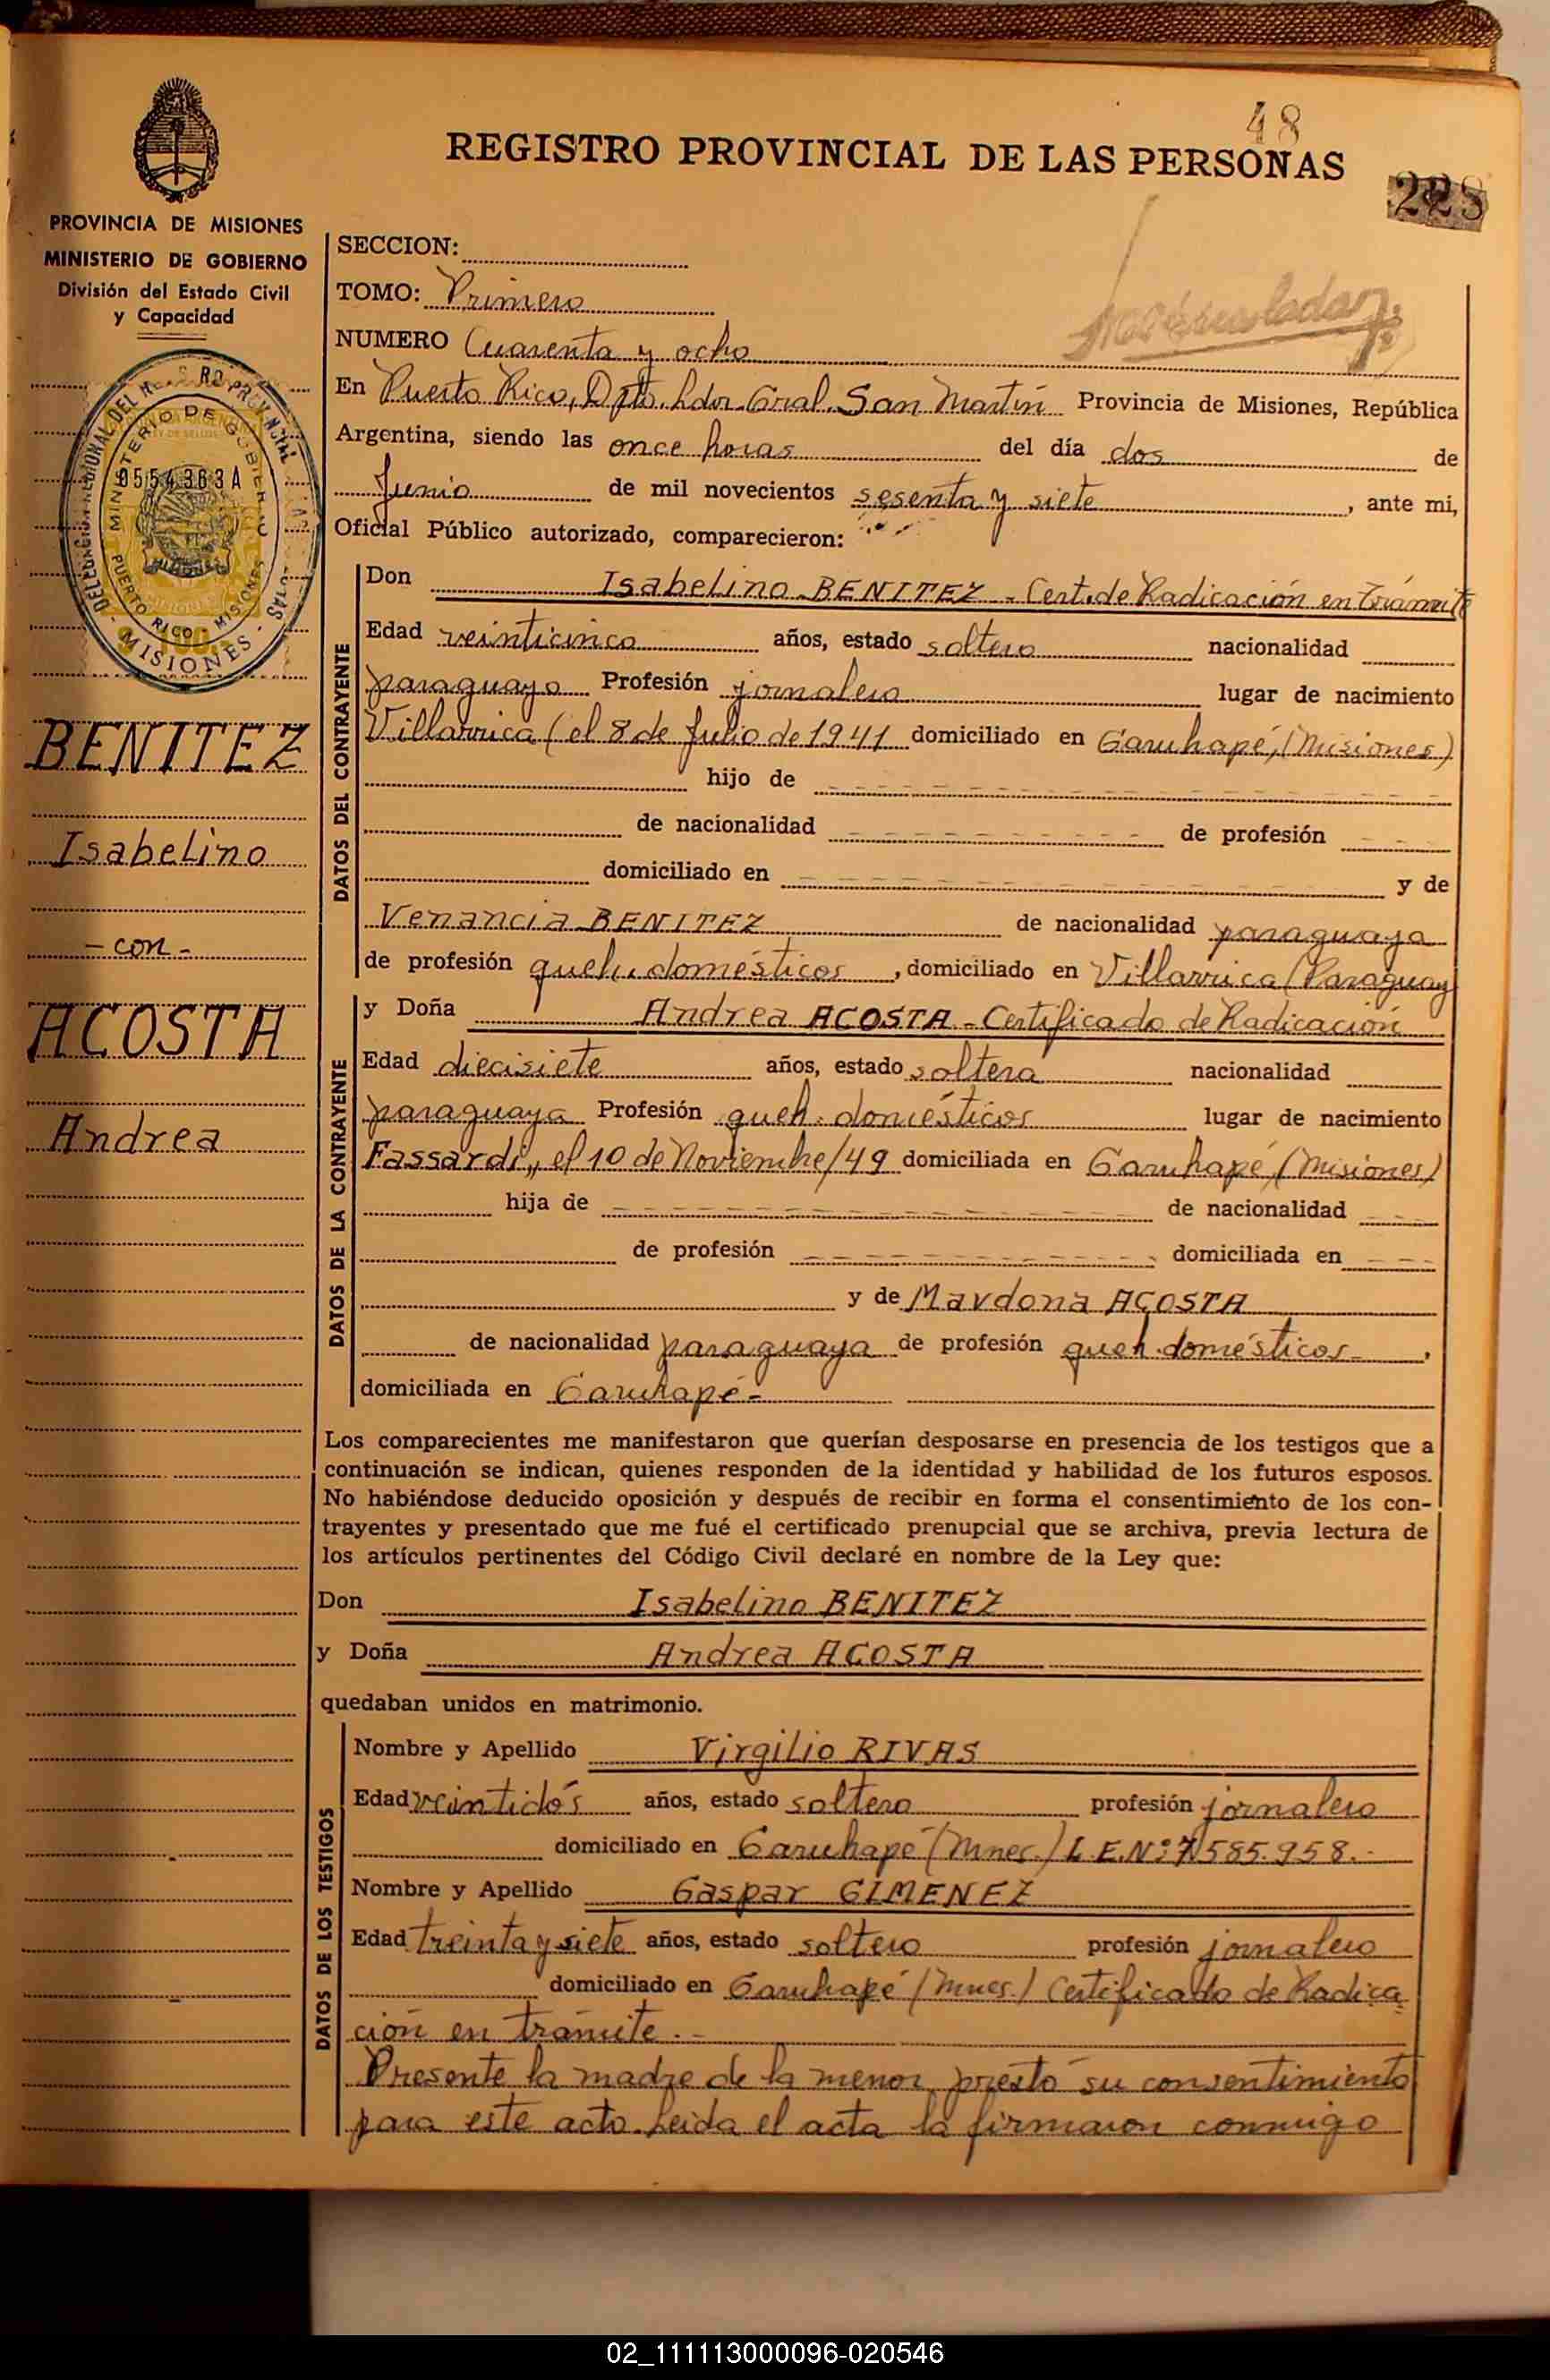 48
REGISTRO PROVINCIAL DE LAS PERSONAS
228
PROVINCIA DE MISIONES
MINISTERIO DE GOBIERNO
División del Estado Civil
y Capacidad
MINISTERIO DE GOBIERNO
0554363A
PUERTO RICO MISIONES
- MISIONES -
BENITEZ
Isabelino
- con -
ACOSTA
Andrea
SECCION:
TOMO: Primero
NUMERO Cuarenta y ocho
En Puerto Rico, Dpto. Ldor. Gral. San Martín Provincia de Misiones, República
Argentina, siendo las once horas del día dos de
Junio de mil novecientos sesenta y siete, ante mi,
Oficial Público autorizado, comparecieron:
DATOS DEL CONTRAYENTE
Don Isabelino BENITEZ - Cert. de Radicación en Trámite
Edad veinticinco años, estado soltero nacionalidad
paraguayo Profesión jornalero lugar de nacimiento
Villarrica (el 8 de Julio de 1941 domiciliado en Garuhapé, (Misiones)
hijo de
de nacionalidad de profesión
domiciliado en y de
Venancia BENITEZ de nacionalidad paraguaya
de profesión queh. domésticos, domiciliado en Villarrica (Paraguay
DATOS DE LA CONTRAYENTE
y Doña Andrea ACOSTA - Certificado de Radicación
Edad diecisiete años, estado soltera nacionalidad
paraguaya Profesión queh. domésticos lugar de nacimiento
Fassardi, el 10 de Noviembre/49 domiciliada en Garuhapé, (Misiones)
hija de de nacionalidad
de profesión domiciliada en
y de Mardona ACOSTA
de nacionalidad paraguaya de profesión queh. domésticos,
domiciliada en Garuhapé-
Los comparecientes me manifestaron que querían desposarse en presencia de los testigos que a
continuación se indican, quienes responden de la identidad y habilidad de los futuros esposos.
No habiéndose deducido oposición y después de recibir en forma el consentimiento de los con-
trayentes y presentado que me fué el certificado prenupcial que se archiva, previa lectura de
los artículos pertinentes del Código Civil declaré en nombre de la Ley que:
Don Isabelino BENITEZ
y Doña Andrea ACOSTA
quedaban unidos en matrimonio.
DATOS DE LOS TESTIGOS
Nombre y Apellido Virgilio RIVAS
Edad veintidós años, estado soltero profesión jornalero
domiciliado en Garuhapé (Mnes.) L.E.Nº: 7.585.958.-
Nombre y Apellido Gaspar GIMENEZ
Edad treinta y siete años, estado soltero profesión jornalero
domiciliado en Garuhapé (Mnes.) Certificado de Radica
ción en trámite.-
Presente la madre de la menor, prestó su consentimiento
para este acto. Leida el acta la firmaron conmigo
02_111113000096-020546